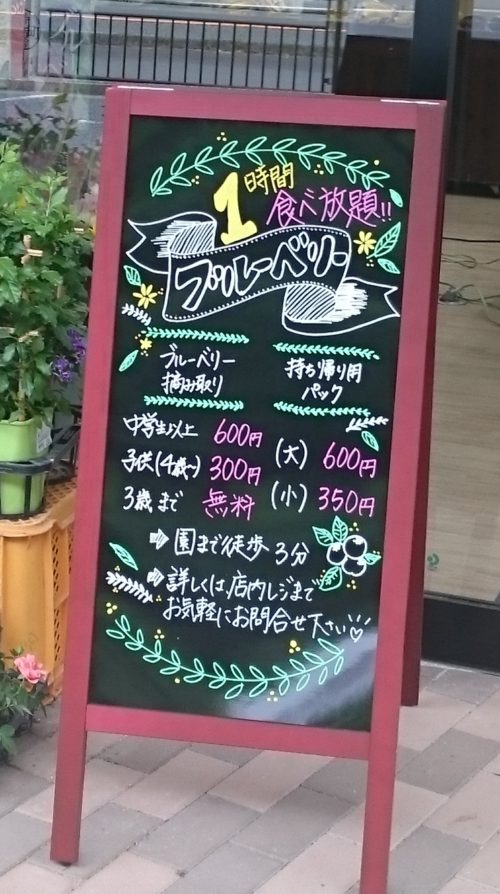 1時間
食べ放題!!
ブルーベリー
ブルーベリー
摘み取り
持ち帰り用
パック
中学生以上 600円
子供(4歳〜) 300円
3歳まで 無料
(大) 600円
(小) 350円
➡ 園まで徒歩 3分
➡ 詳しくは店内レジまで
お気軽にお問合せ下さい♡